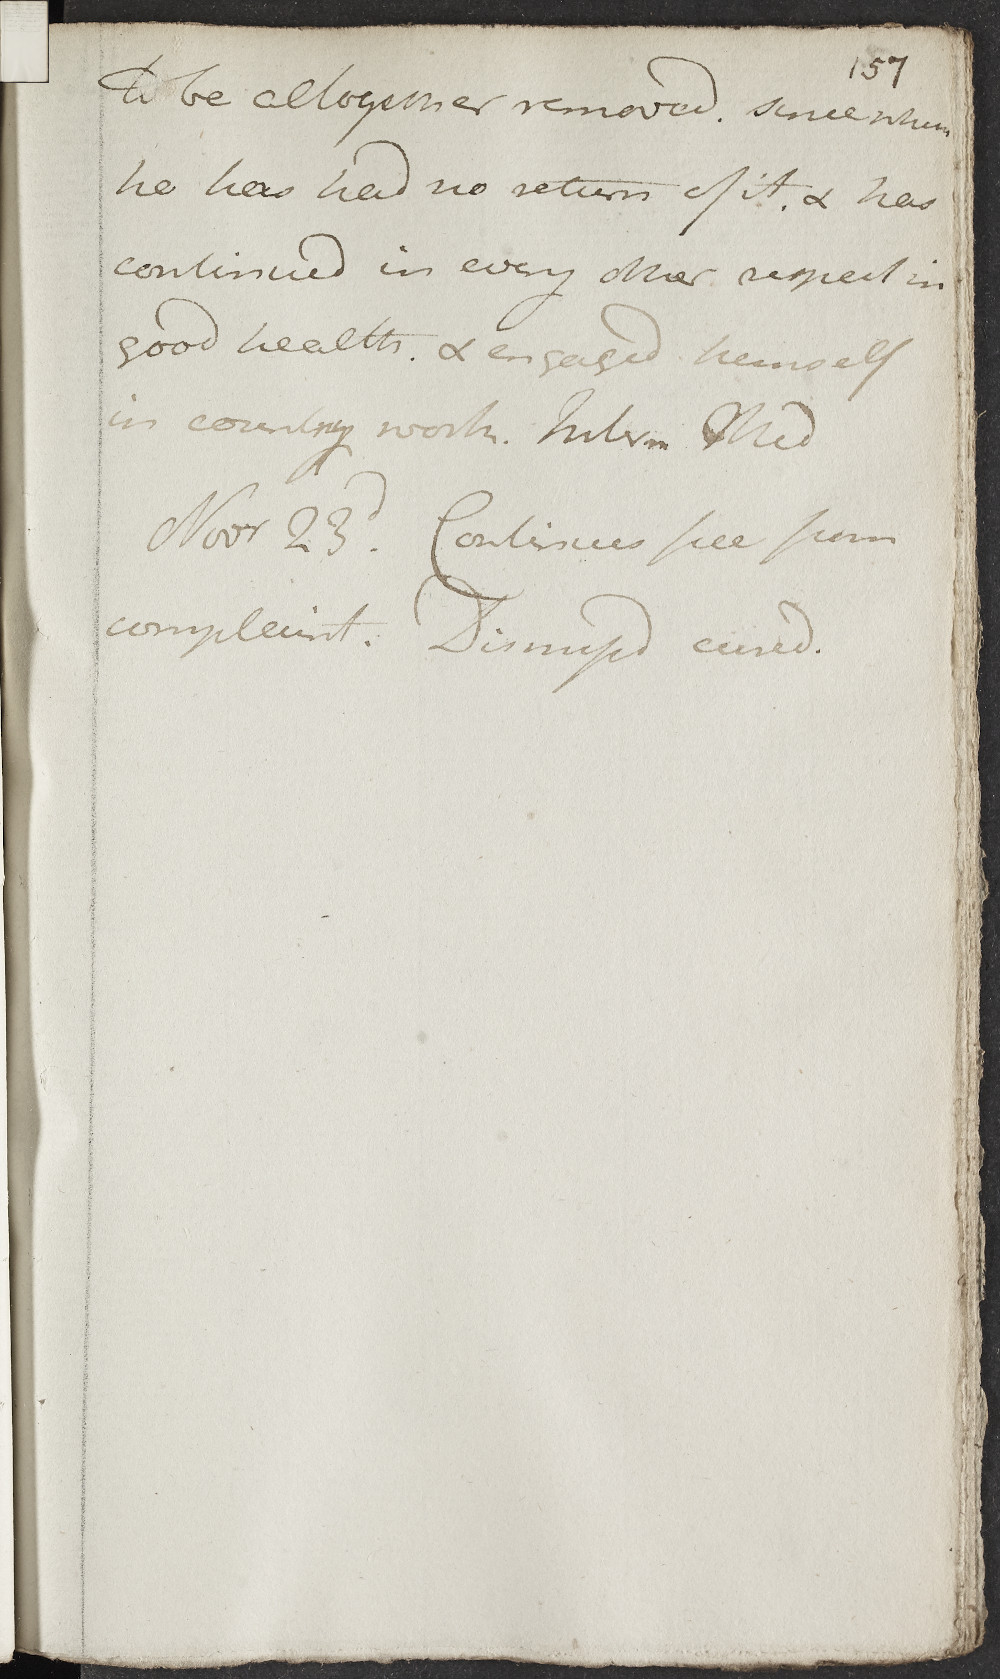 157
to be altogether removed. since when
he has had no return of it. & has
continued in every other respect in
good health. & engaged himself
in country work. Interm Med
Novr 23d. Continues free from
complaint. Dismissd cured.